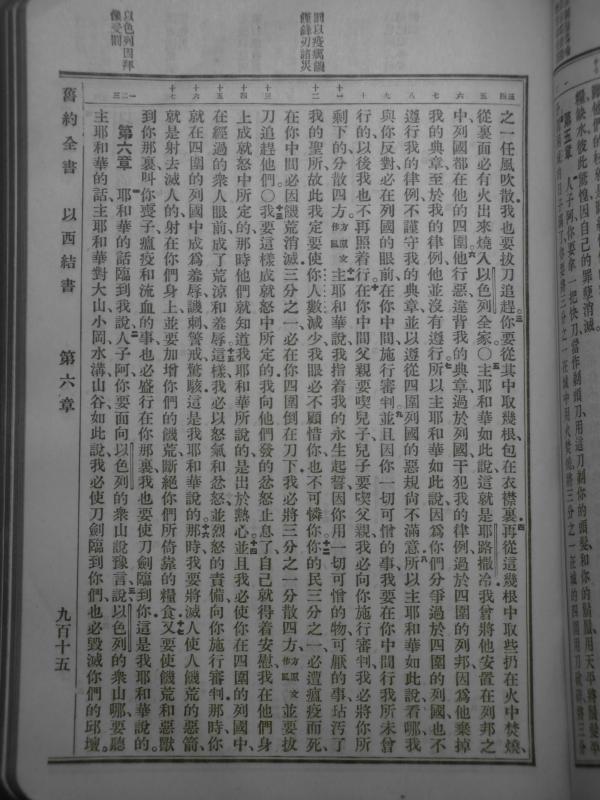 第五章 人子阿你要拿一把快刀當作剃頭刀用這刀剃你的頭髮和你的鬍鬚用天平將鬚髮平
三四 五 六 七 八 九 十 十一 十二 十三 十四 十五 十六 十七 一 二 三
之一任風吹散我也要拔刀追趕、你要從其中取幾根包在衣襟裏、再從這幾根中取些扔在火中焚燒、
從裏面必有火出來燒入以色列全家〇主耶和華如此說這就是耶路撒冷我曾將他安置在列邦之
中列國都在他的四圍他行惡違背我的典章過於列國干犯我的律例過於四圍的列邦因為他棄掉
我的典章至於我的律例他並沒有遵行所以主耶和華如此說因為你們分爭過於四圍的列國也不
遵行我的律例不謹守我的典章並以遵從四圍列國的惡規尚不滿意所以主耶和華如此說看哪我
與你反對必在列國的眼前在你中間施行審判並且因你一切可憎的事我要在你中間行我所未曾
行的以後我也不再照着行在你中間父親要喫兒子兒子要喫父親我必向你施行審判我必將你所
剩下的分散四方方原文作風主耶和華說我指着我的永生起誓因你用一切可憎的物可厭的事玷污了
我的聖所故此我定要使你人數減少我眼必不顧惜你也不可憐你你的民三分之一必遭瘟疫而死
在你中間必因饑荒消滅三分之一必在你四圍倒在刀下我必將三分之一分散四方方原文作風並要拔
刀追趕他們〇我要這樣成就怒中所定的我向他們發的忿怒止息了自己就得着安慰我在他們身
上成就怒中所定的那時他們就知道我耶和華所說的是出於熱心並且我必使你在四圍的列國中
在經過的衆人眼前成了荒涼和羞辱這樣我必以怒氣和忿怒並烈怒的責備向你施行審判那時你
就在四圍的列國中成為羞辱譏刺警戒驚駭這是我耶和華說的那時我要將滅人使人饑荒的惡箭、
就是射去滅人的射在你們身上並要加增你們的饑荒斷絕你們所倚靠的糧食又要使饑荒和惡獸
到你那裏叫你喪子瘟疫和流血的事也必盛行在你那裏我也要使刀劍臨到你這是我耶和華說的。
第六章 耶和華的話臨到我說人子阿你要面向以色列的衆山說豫言說以色列的衆山哪要聽
主耶和華的話主耶和華對大山小岡水溝山谷如此說我必使刀劍臨到你們也必毀滅你們的邱壇。
以色列因拜
像受罰
舊約全書 以西結書 第六章 九百十五